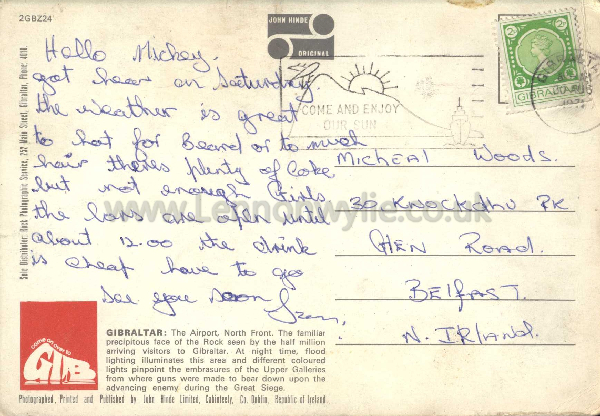 2GBZ24
JOHN HINDE
ORIGINAL
Hello Mickey.
got hear on Saturday
the weather is great
to hot for Beard or to much
hair theres plenty of Coke
but not enough Girls
the bars are open until
about 12.00 the drink
is cheap have to go
see you soon
COME AND ENJOY
OUR SUN
GIBRALTAR
Micheal Woods.
30 Knockdhu Pk
Glen Road.
Belfast.
N. Irland.
www.Lennonwylie.co.uk
Sole Distributor: Rock Photographic Service, 232 Main Street, Gibraltar. Phone: 4018.
come on over to
GIB
GIBRALTAR: The Airport, North Front. The familiar
precipitous face of the Rock seen by the half million
arriving visitors to Gibraltar. At night time, flood
lighting illuminates this area and different coloured
lights pinpoint the embrasures of the Upper Galleries
from where guns were made to bear down upon the
advancing enemy during the Great Siege.
Photographed, Printed and Published by John Hinde Limited, Cabinteely, Co. Dublin, Republic of Ireland